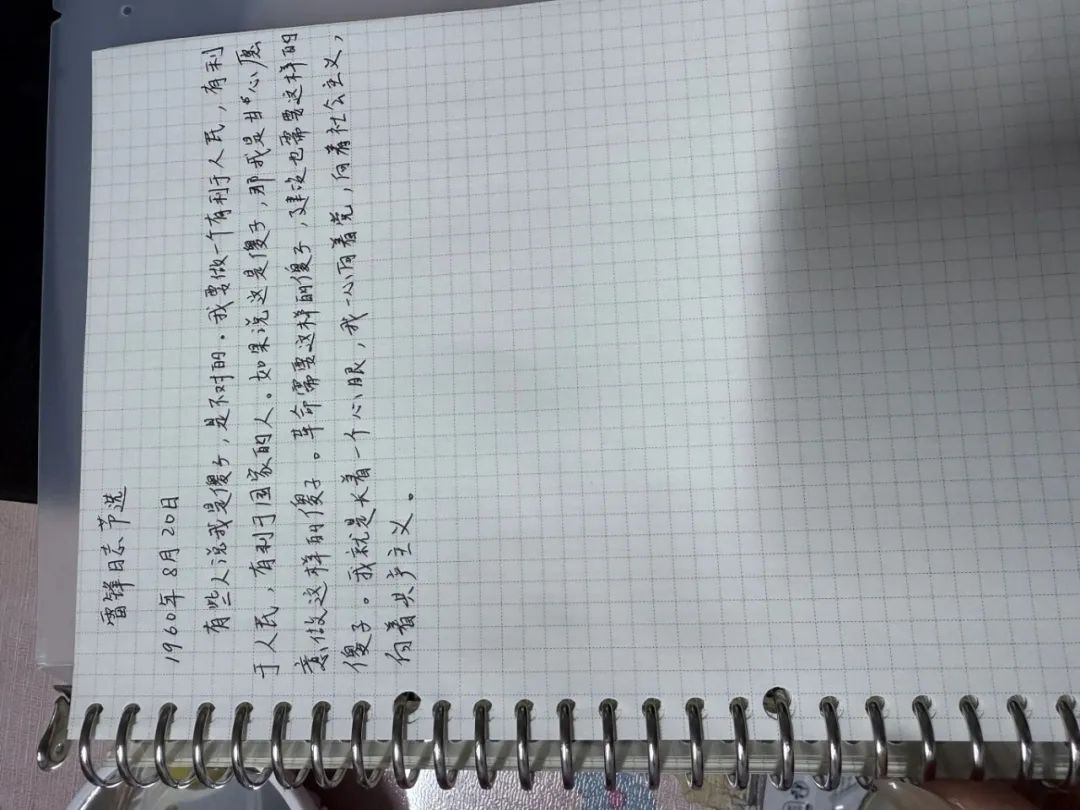 雷锋日志节选
1960年8月20日
有些人说我是傻子,是不对的。我要做一个有利于人民,有利
于人民,有利于国家的人。如果说这是傻子,那我是甘〃心愿
意做这样的傻子。革命需要这样的傻子,建设也需要这样的
傻子。我就是长着一个心眼,我一心向着党,向着社会主义,
向着共产主义。